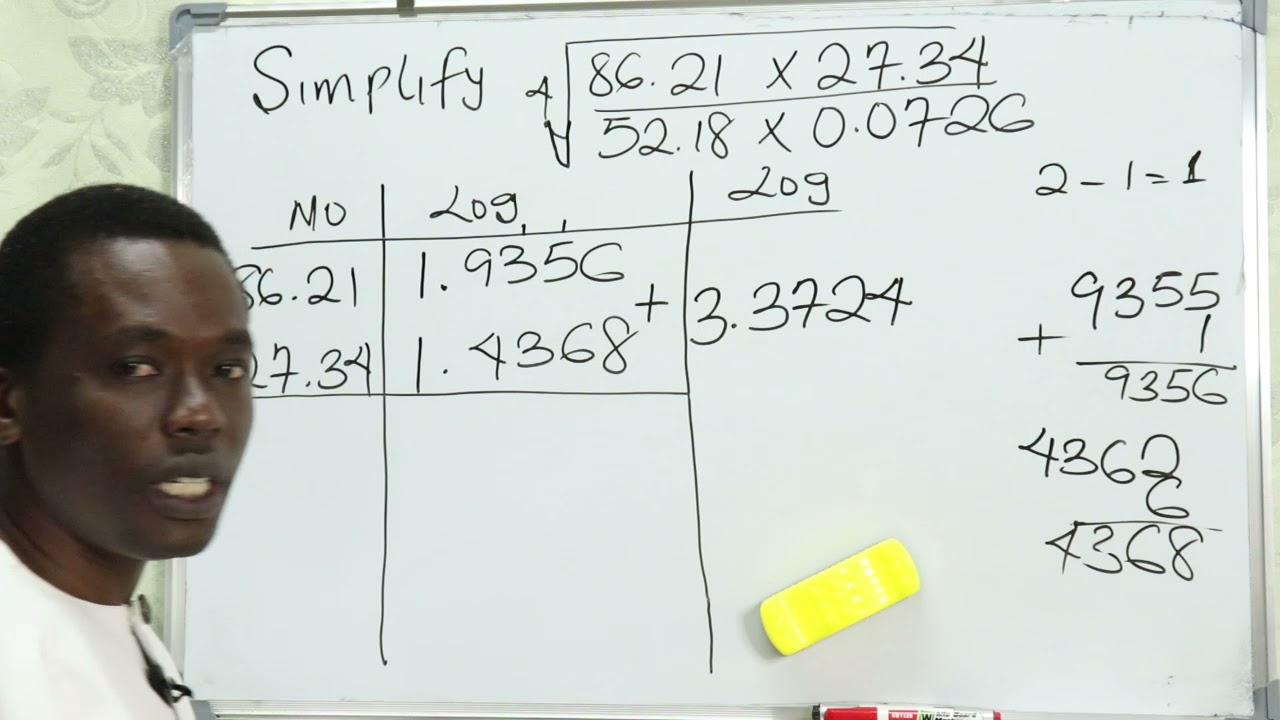 Simplify 4√ 86.21 × 27.34
52.18 × 0.0726
2 - 1 = 1
NO Log Log
86.21 1.9356
27.34 1.4368 + 3.3724
9355
+ 1
9356
4362
6
4368